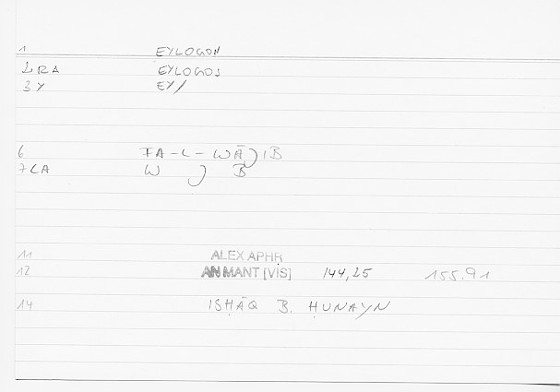 1 EYLOGON
2RA EYLOGOS
3Y EY/
6 FA-L-WĀJIB
7LA W J B
11 ALEX APHR
12 AN MANT [VIS] 144,25 155.91
14 ISḤĀQ B. ḤUNAYN